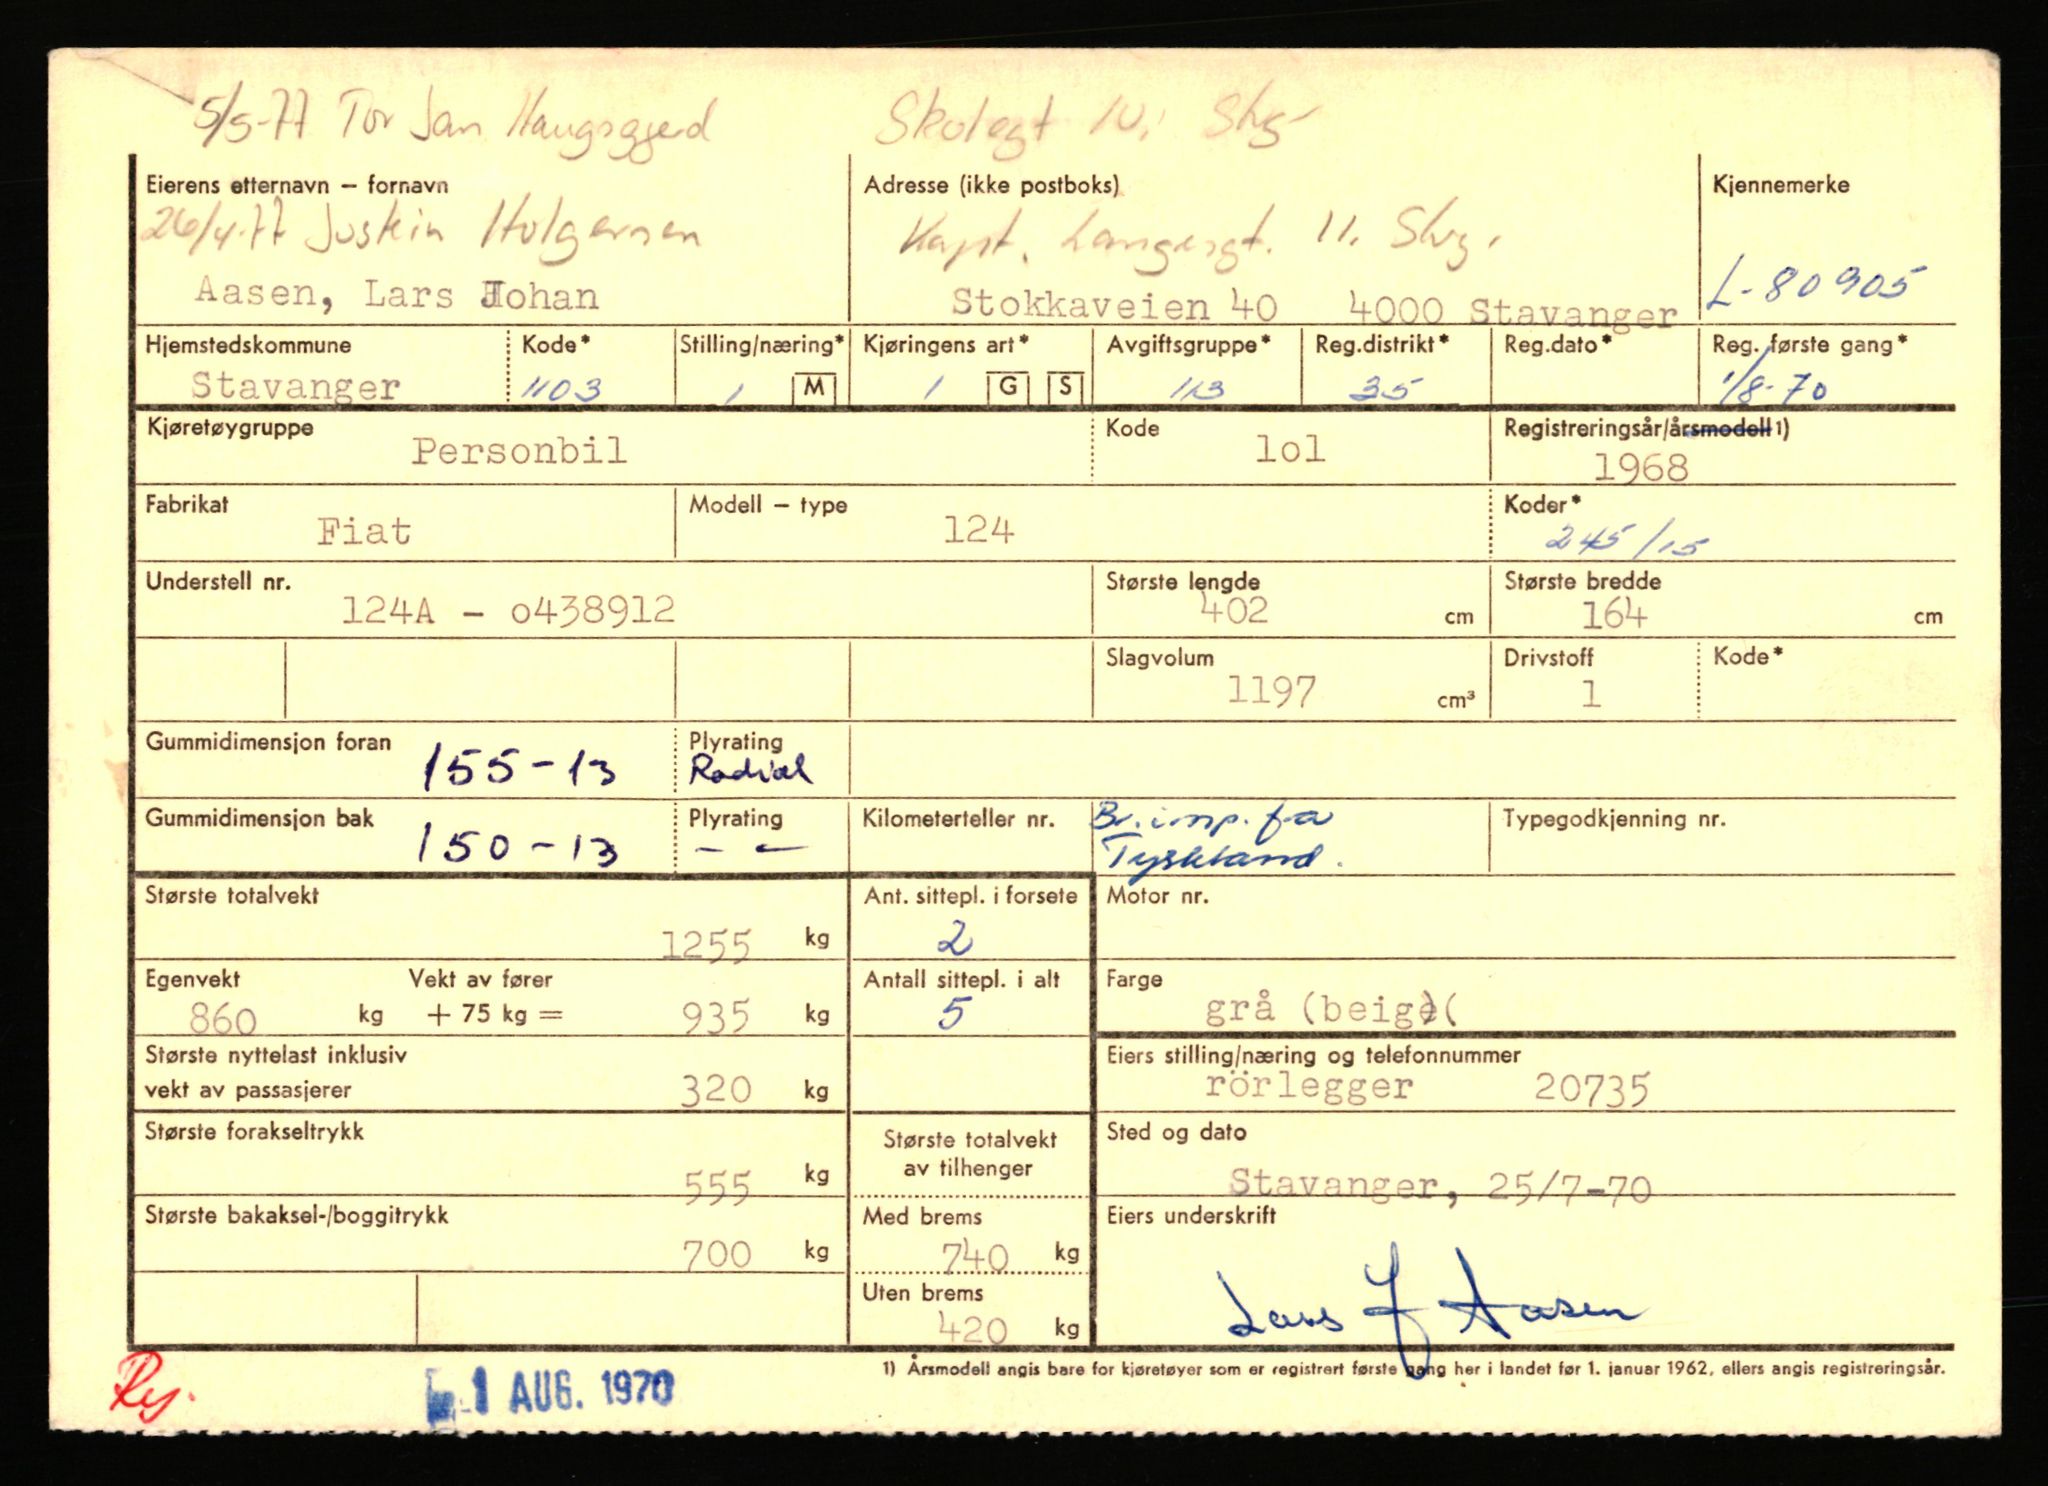 5/5-77 Tor Jan Haugsgjerd Skolegt 10, Stvg
Eierens etternavn – fornavn Adresse (ikke postboks) Kjennemerke
26/4-77 Jostein Holgersen Kapt. Langesgt. 11. Stvg.
Aasen, Lars Johan Stokkaveien 40 4000 Stavanger L-80905
Hjemstedskommune Kode* Stilling/næring* Kjøringens art* Avgiftsgruppe* Reg.distrikt* Reg.dato* Reg. første gang*
Stavanger 1103 1 M 1 G S 113 35 1/8-70
Kjøretøygruppe Kode Registreringsår/årsmodell 1)
Personbil lol 1968
Fabrikat Modell – type Koder*
Fiat 124 245/15
Understell nr. Største lengde Største bredde
124A - o438912 402 cm 164 cm
Slagvolum Drivstoff Kode*
1197 cm³ 1
Gummidimensjon foran 155-13 Plyrating Radial
Gummidimensjon bak 150-13 Plyrating - - Kilometerteller nr. Br. imp. fra Typegodkjenning nr.
Tyskland.
Største totalvekt Ant. sittepl. i forsete Motor nr.
1255 kg 2
Egenvekt Vekt av fører Antall sittepl. i alt Farge
860 kg + 75 kg = 935 kg 5 grå (beige)(
Største nyttelast inklusiv Eiers stilling/næring og telefonnummer
vekt av passasjerer 320 kg rörlegger 20735
Største forakseltrykk Største totalvekt Sted og dato
555 kg av tilhenger Stavanger, 25/7-70
Største bakaksel-/boggitrykk Med brems Eiers underskrift
700 kg 740 kg
Uten brems Lars J Aasen
420 kg
1) Årsmodell angis bare for kjøretøyer som er registrert første gang her i landet før 1. januar 1962, ellers angis registreringsår.
-1 AUG. 1970